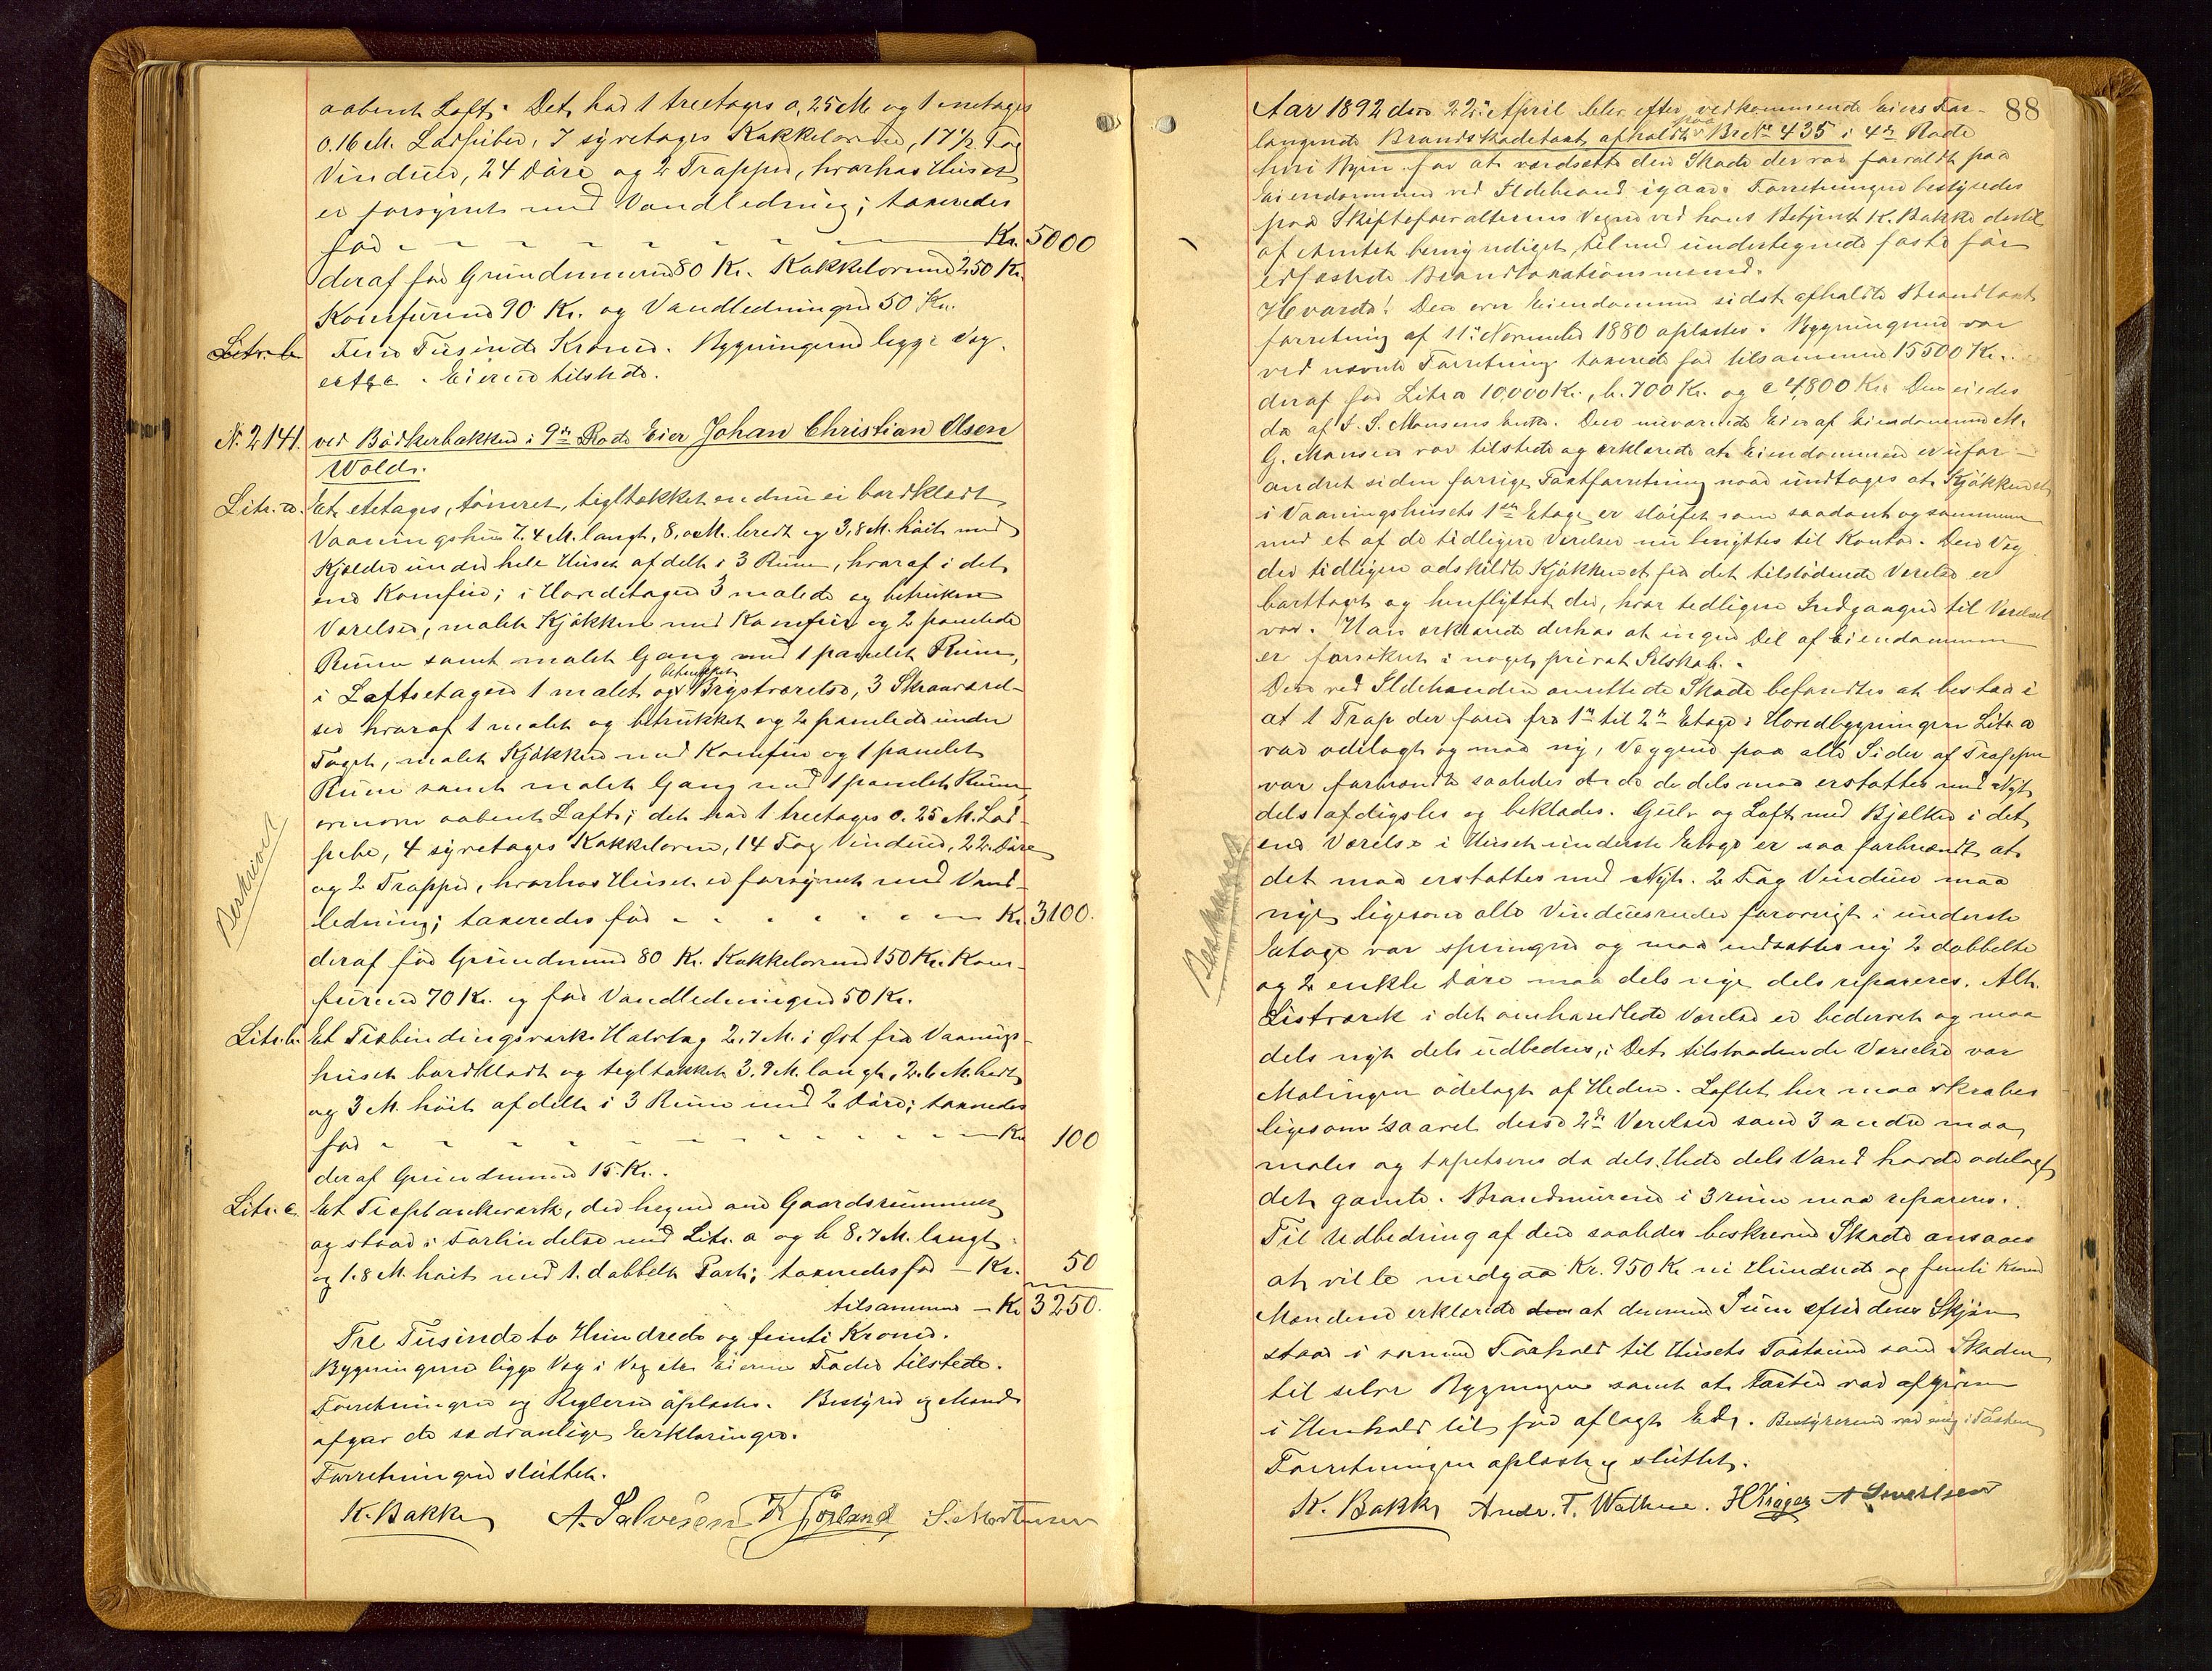 aabent Loft. Det har 1 treetages 0,25 M. og 1 enetages
0.16 M. Ladpibe, 7 syretages Kakkelovne, 17 1/2 Fag
Vinduer, 24 Døre og 2 Trapper, hvorhos Huset
er forsynet med Vandledning; taxeredes
for - - - - - - - - Kr. 5000
deraf for Grundmuren 80 Kr. Kakkelovnene 250 Kr.
Komfurene 90 Kr. og Vandledningen 50 Kr.
Litr. b. Fem Tusinde Kroner. Bygningerne ligge Væg
Eieren tilstede.
N. 2141. ved Bødkerbakken i 9de Rode Eier Johan Christian Olsen
Wold.
Litr. a. Et etetages, tømret, tegltækket endnu ei bordklædt
Vaaningshus 7.4 M. langt, 8,0 M. bredt og 3,8 M. høit med
Kjelder under hele Huset afdelt i 3 Rum, hvoraf i det
ene Komfur; i Hovedetagen 3 malede og betrukne
Værelser, malet Kjøkken med Komfur og 2 panelede
Rum samt malet Gang med 1 panelet Rum,
i Loftsetagen 1 malet og betrukket Brystværelse, 3 Skraaværel-
ser hvoraf 1 malet og betrukket og 2 panelede under
Taget, malet Kjøkken med Komfur og 1 panelet
Rum samt malet Gang med 1 panelet Rum,
ovenover aabent Loft; det har 1 treetages 0.25 M. Lad-
pibe, 4 syretages Kakkelovne, 14 Fag Vinduer, 22 Døre
og 2 Trapper, hvorhos Huset er forsynet med Vand-
ledning; taxeredes for - - - - - - Kr. 3100.
Beskrevet
deraf for Grundmuren 80 Kr. Kakkelovnene 150 Kr. Kom-
furene 70 Kr. og for Vandledningen 50 Kr.
Litr. b. Et Træbindingsværks Halvtag 2.7 M. i Øst fra Vaanings-
huset bordklædt og tegltækket 3.9 M. langt, 2.6 M. bredt
og 3 M. høit afdelt i 3 Rum med 2 Døre; taxeredes
for - - - - - - - - - Kr. 100
deraf Grundmuren 15 Kr.
Litr. c. Et Træplankeværk, der hegner om Gaardsrummet
og staar i Forbindelse med Litr. a og b 8.7 M. langt
og 1.8 M. høit med 1 dobbelt Port; taxeredes for - Kr. 50
tilsammen - Kr. 3250.
Tre Tusinde to Hundrede og femti Kroner.
Bygningerne ligge Væg i Væg Eierens Fader tilstede.
Forretningen og Reglerne oplæstes. Bestyrer og Mænd
afgav de sædvanlige Erklæringer.
Forretningen sluttet.
K. Bakke A. Salvesen K Tjørland S. Mortensen
88
Aar 1892 den 22de April blev efter vedkommende Eiers For-
langende Brandskadetaxt afholdt paa Br. No 435 i 4de Rode
heri Byen for at værdsætte den Skade der var forvoldt paa
Eiendommen ved Ildebrand igaar. Forretningen bestyredes
paa Skifteforvalterens Vegne ved hans Betjent K. Bakke dertil
af Amtet bemyndiget, tilmed undertegnede faste for
edfæstede Brandtaxationsmænd.
Hvorda! Den over Eiendommen sidst afholdte Brandtaxt
forretning af 11te November 1880 oplæstes. Bygningerne var
ved nævnte Forretning taxerede for tilsammen 15500 Kr.
deraf for Litr a 10,000 Kr., b. 700 Kr. og c 4,800 Kr. Den eiedes
da af S. S. Monsens Enke. Den nuværende Eier af Eiendommen M.
G. Monsen var tilstede og erklærede at Eiendommen er ufor-
andret siden forrige Taxtforretning naar undtages at Kjøkkenet
i Vaaningshusets 1ste Etage er sløifet som saadant og sammen
med et af de tidligere Værelser nu benyttes til Kontor. Den Væg
der tidligere adskildte Kjøkkenet fra det tilstødende Værelse er
borttaget og henflyttet der, hvor tidligere Indgangen til Værelset
var. Han erklærede derhos at ingen Del af Eiendommen
er forsikret i noget privat Selskab.
Den ved Ildebranden anrettede Skade befandtes at bestaa i
at 1 Trap der forer fra 1ste til 2den Etage i Hovedbygningen Litr a
var ødelagt og maa ny, Væggene paa alle Sider af Trappen
var forbrændt saaledes at de dels maa erstattes med Nyt
dels afdigsles og beklædes. Gulv og Loft med Bjælker i det
ene Værelse i Husets underste Etage er saa forbrændt at
det maa erstattes med Nyt. 2 Fag Vinduer maa
nye ligesom alle Vinduesruder forøvrigt i underste
Beskrevet
Etage var sprungne og maa indsættes ny 2 dobbelte
og 2 enkle Døre maa dels nye dels repareres. Alt
Listværk i det omhandlede Værelse er bedervet og maa
dels nyt dels udbedres, i Det tilstødende Værelse var
Malingen ødelagt af Heden. Loftet her maa skrabes
ligesom saavel disse 2de Værelser som 3 andre maa
males og tapetseres da dels Hede dels Vand havde ødelagt
det gamle. Brandmurene i 3 rum maa repareres.
Til Udbedring af den saaledes beskrevne Skade ansaaes
at ville medgaa Kr. 950 Kr ni Hundrede og femti Kroner
Mændene erklærede at denne Sum efter deres Skjøn
staar i samme Forhold til Husets Taxtsum som Skaden
til selve Bygningen samt at Taxten var afgiven
i Henhold til før aflagt Ed. Bestyreren var enig i Taxten
Forretningen oplæst og sluttet.
K. Bakke Andr. T. Wathne. H Krøger A Sivertsen